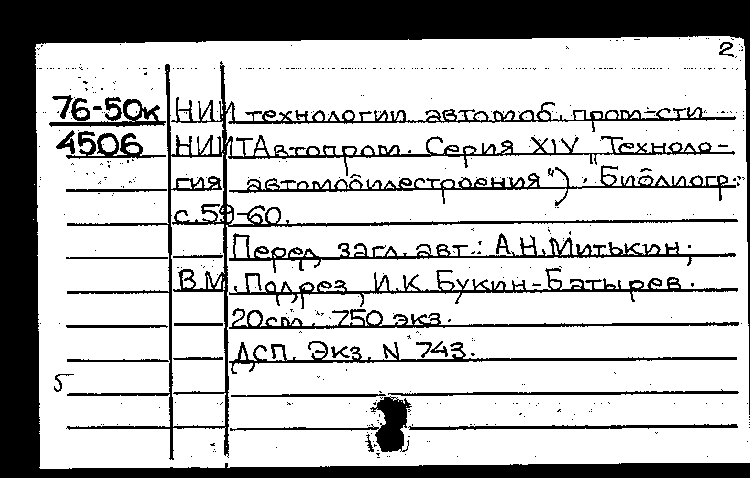 2
76-50к НИИ технологии автомоб. пром-сти
4506 НИИТАвтопром. Серия XIV "Техноло-
гия автомобилестроения"). Библиогр.:
с.59-60.
Перед загл. авт.: А.Н.Митькин,
В.М. Подрез, И.К. Букин-Батырев.
20см. 750 экз.
ДСП. Экз. N 743.